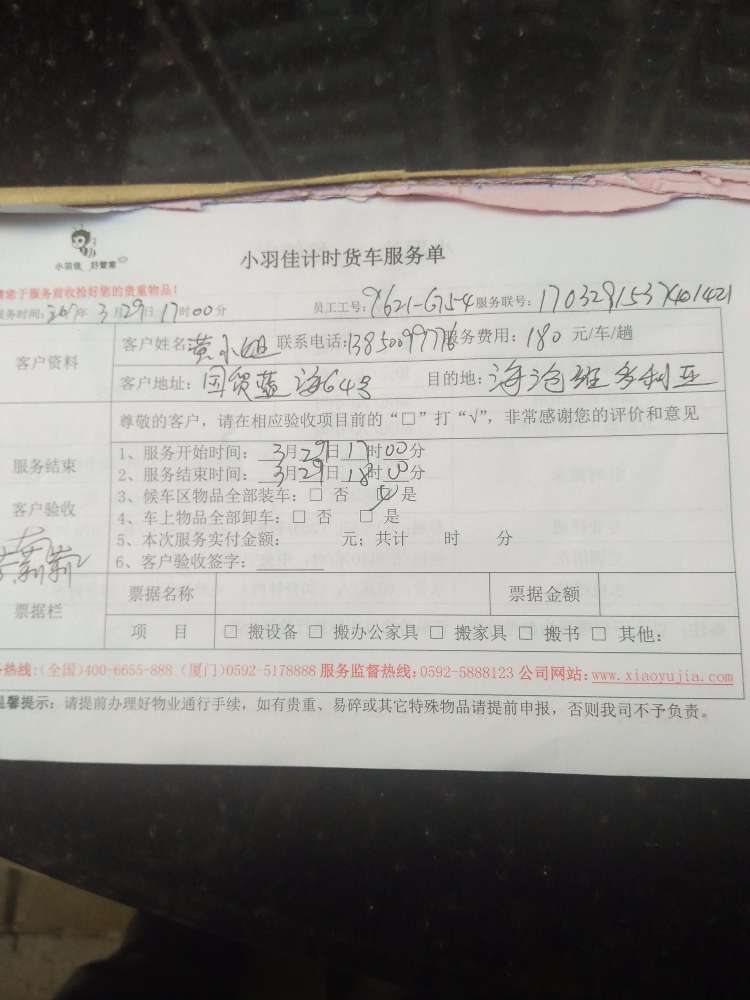 小羽佳 好管家
小羽佳计时货车服务单
请您于服务前收捡好您的贵重物品!
服务时间: 2017年 3月29日17时00分 员工工号: 9621-6754 服务联号: 170329153X401421
客户资料
客户姓名 黄小姐 联系电话: 13850099776 服务费用: 180 元/车/趟
客户地址: 国贸蓝海64号 目的地: 海沧 亚
尊敬的客户，请在相应验收项目前的“□”打“√”，非常感谢您的评价和意见
服务结束
客户验收
1、服务开始时间: 3月29日17时00分
2、服务结束时间: 3月29日18时00分
3、候车区物品全部装车: □ 否 ☑ 是
4、车上物品全部卸车: □ 否 □ 是
5、本次服务实付金额: 元; 共计 时 分
6、客户验收签字:
票据栏
票据名称 票据金额
项 目 □ 搬设备 □ 搬办公家具 □ 搬家具 □ 搬书 □ 其他:
务热线:(全国)400-6655-888 (厦门)0592-5178888 服务监督热线: 0592-5888123 公司网站: www.xiaoyujia.com
温馨提示: 请提前办理好物业通行手续, 如有贵重、易碎或其它特殊物品请提前申报, 否则我司不予负责。